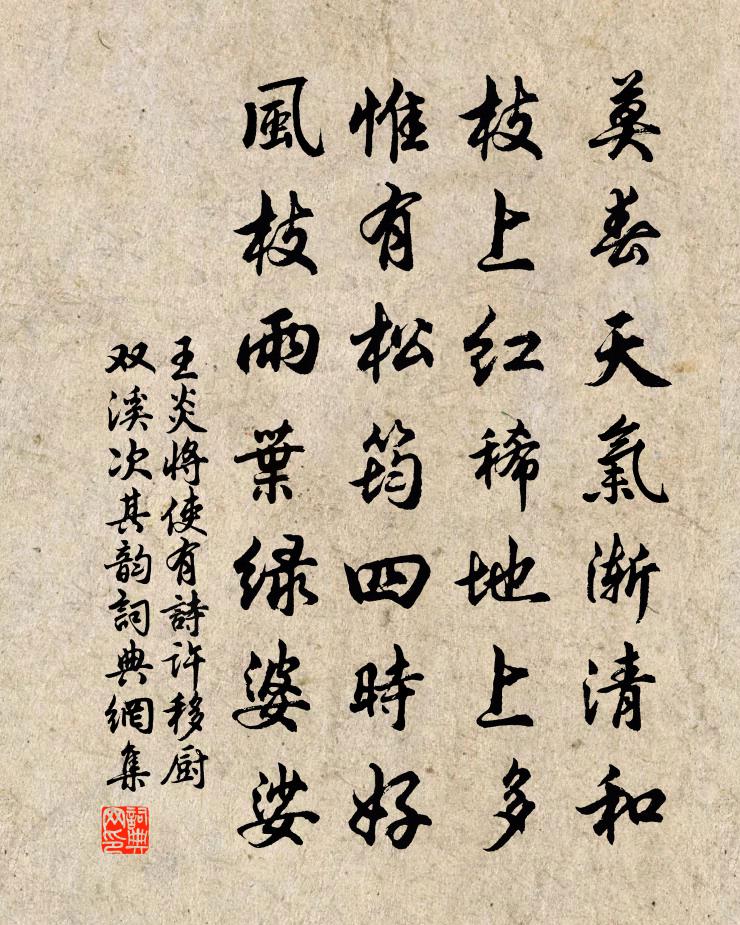 莫春天氣漸清和
枝上红稀地上多
惟有松筠四時好
風枝雨葉绿婆娑
王炎将使有詩许移厨
双溪次其韵詞典網集
詞典网印